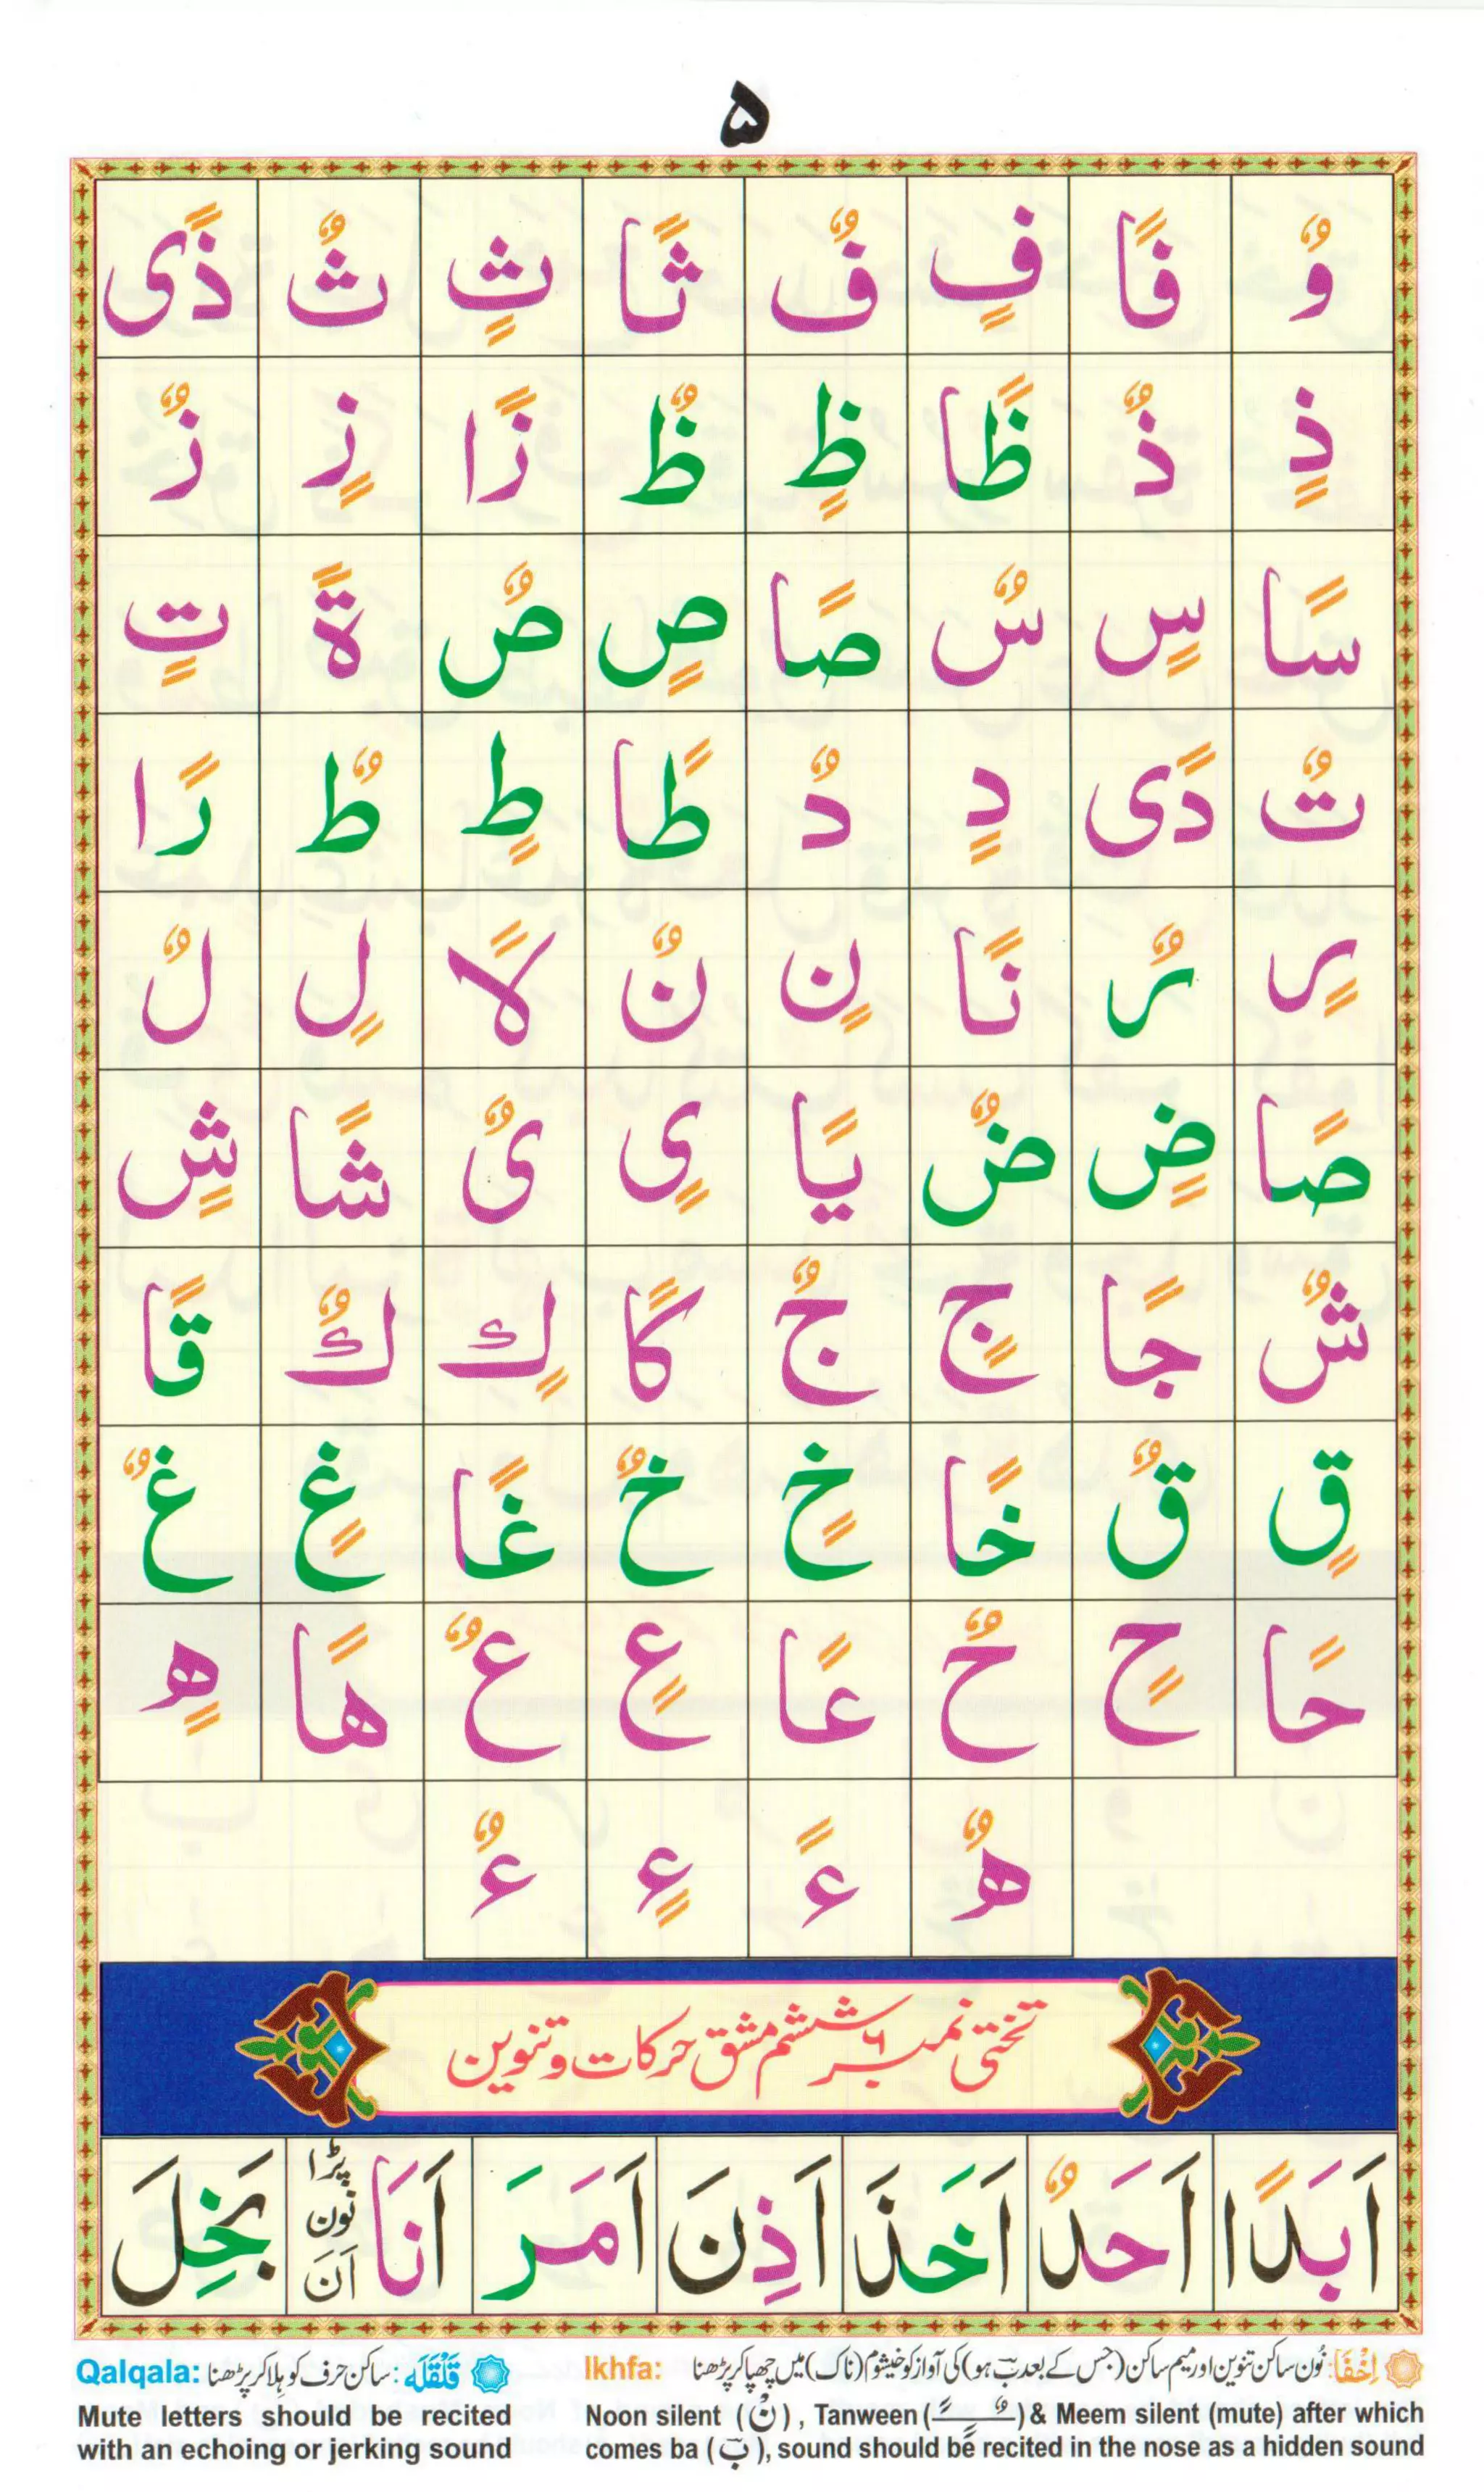 ۵
وٌ فًا فٍ فٌ ثًا ثٍ ثٌ ذًى
ذٍ ذٌ ظًا ظٍ ظٌ زًا زٍ زٌ
سًا سٍ سٌ صًا صٍ صٌ ةً تٍ
تٌ دًى دٍ دٌ طًا طٍ طٌ رًا
رٍ رٌ نًا نٍ نٌ لًا لٍ لٌ
صًا ضٍ ضٌ يًا ىٍ ىٌ شًا شٍ
شٌ جًا جٍ جٌ كًا كٍ كٌ قًا
قٍ قٌ خًا خٍ خٌ غًا غٍ غٌ
حًا حٍ حٌ عًا عٍ عٌ هًا هٍ
هٌ ءً ءٍ ءٌ
تختی نمبر ٦ ششم مشق حرکات و تنوین
اَبَدًا اَحَدٌ اَخَذَ اَذِنَ اَمَرَ اَنَا پڑا نون اَنَ بَخِلَ
اِخْفَا: نُون ساکن تنوین اور میم ساکن (جس کے بعد بَ ہو) کی آواز کو خیشوم (ناک) میں چھپا کر پڑھنا Ikhfa:
Noon silent (نْ), Tanween (ً ٍ ٌ) & Meem silent (mute) after which
comes ba (بَ), sound should be recited in the nose as a hidden sound
قَلْقَلَه: ساکن حرف کو ہلا کر پڑھنا Qalqala:
Mute letters should be recited
with an echoing or jerking sound